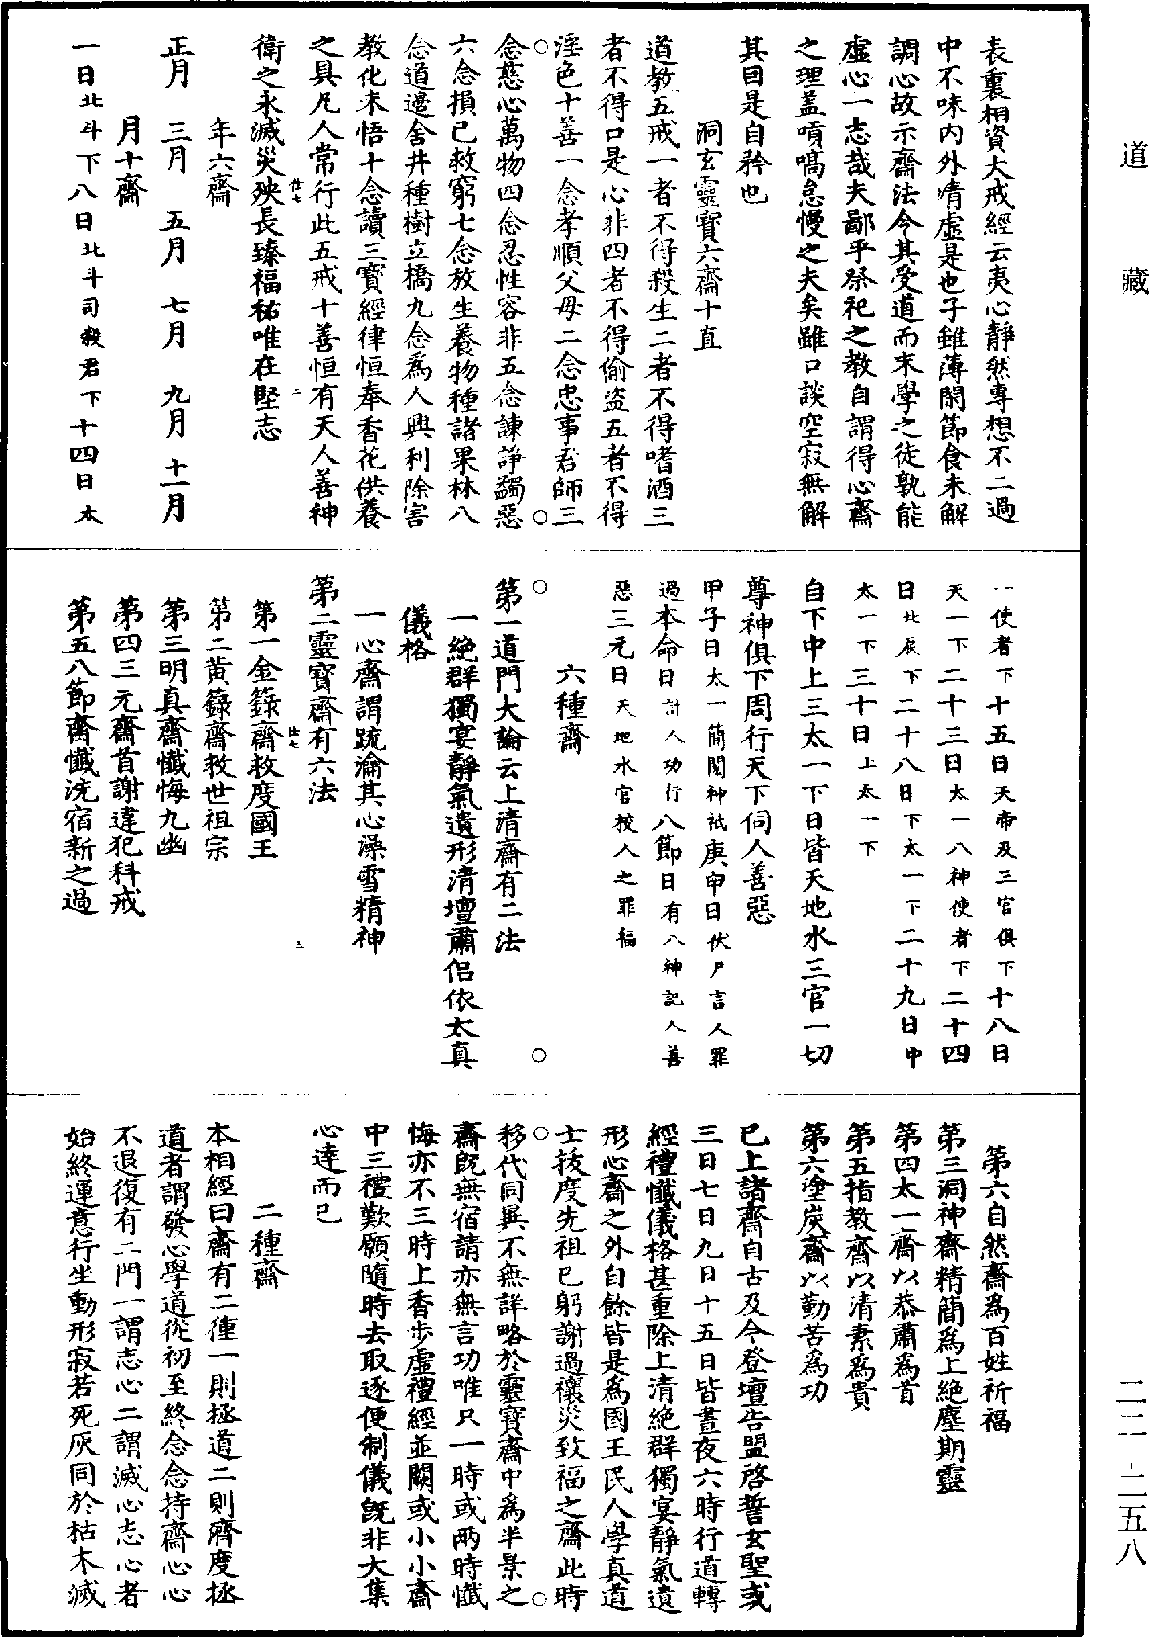 道藏
二二-二五八
表裏相資大戒經云夷心靜然專想不二過
中不味內外清虛是也子雖薄閑節食未解
調心故示齋法令其受道而末學之徒孰能
虛心一志哉夫鄙乎祭祀之教自謂得心齋
之理蓋嗊嗃怠慢之夫矣雖口談空寂無解
其目是自矜也
洞玄靈寶六齋十直
道教五戒一者不得殺生二者不得嗜酒三
者不得口是心非四者不得偷盜五者不得
淫色十善一念孝順父母二念忠事君師三
念慈心萬物四念忍性容非五念諫諍蠲惡
六念損己救窮七念放生養物種諸果林八
念道邊舍井種樹立橋九念爲人興利除害
教化未悟十念讀三寶經律恒奉香花供養
之具凡人常行此五戒十善恒有天人善神
衛之永滅災殃長臻福祐唯在堅志
年六齋
正月 三月 五月 七月 九月 十一月
月十齋
一日北斗下八日北斗司殺君下十四日太
一使者下十五日天帝及三官俱下十八日
天一下二十三日太一八神使者下二十四
日北辰下二十八日下太一下二十九日中
太一下三十日上太一下
自下中上三太一下日皆天地水三官一切
尊神俱下周行天下伺人善惡
甲子日太一簡閱神祇庚申日伏尸言人罪
過本命日計人功行八節日有八神記人善
惡三元日天地水官校人之罪福
六種齋
第一道門大論云上清齋有二法
一絕群獨宴靜氣遺形清壇肅侶依太真
儀格
一心齋謂疏瀹其心澡雪精神
第二靈寶齋有六法
第一金籙齋救度國王
第二黃籙齋救世祖宗
第三明真齋懺悔九幽
第四三元齋首謝違犯科戒
第五八節齋懺洗宿新之過
第六自然齋爲百姓祈福
第三洞神齋精簡爲上絕塵期靈
第四太一齋以恭肅爲首
第五指教齋以清素爲貴
第六塗炭齋以勤苦爲功
已上諸齋自古及今登壇告盟啓誓玄聖或
三日七日九日十五日皆晝夜六時行道轉
經禮懺儀格甚重除上清絕群獨宴靜氣遺
形心齋之外自餘皆是爲國王民人學真道
士拔度先祖已躬謝過禳災致福之齋此時
移代同異不無詳略於靈寶齋中爲半景之
齋旣無宿請亦無言功唯只一時或兩時懺
悔亦不三時上香步虛禮經並闕或小小齋
中三禮歎願隨時去取逐便制儀旣非大集
心達而已
二種齋
本相經曰齋有二種一則拯道二則濟度拯
道者謂發心學道從初至終念念持齋心心
不退復有二門一謂志心二謂滅心志心者
始終運意行坐動形寂若死灰同於枯木滅